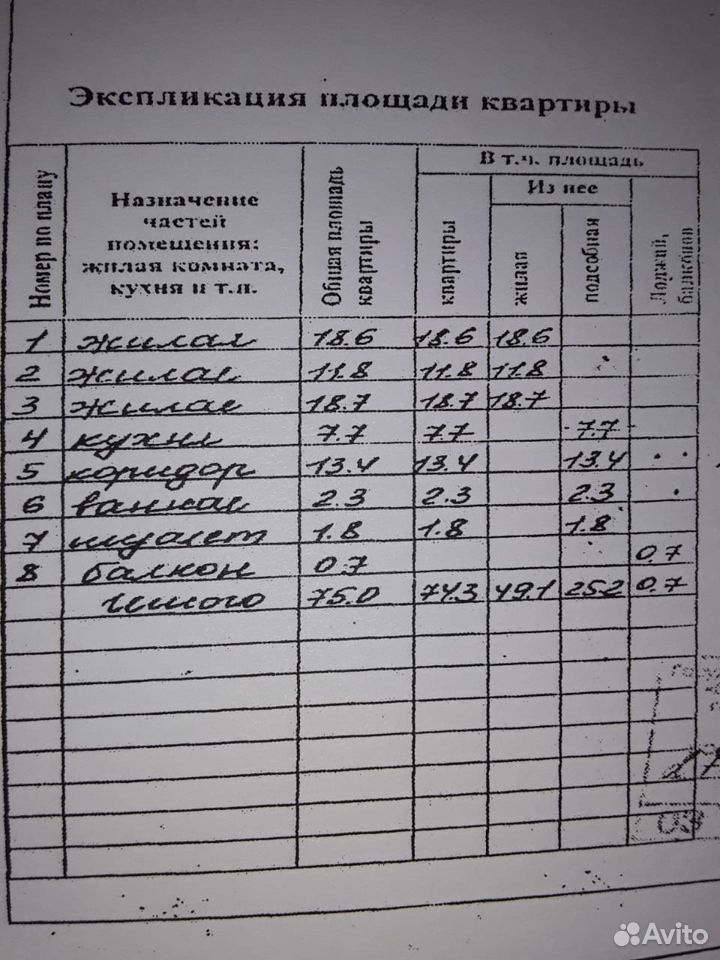 Экспликация площади квартиры
Номер по плану
Назначение
частей
помещения:
жилая комната,
кухня и т.п.
Общая площадь
квартиры
В т.ч. площадь
квартиры
Из нее
жилая
подсобная
Лоджий,
балконов
1 жилая 18.6 18.6 18.6
2 жилая 11.8 11.8 11.8
3 жилая 18.7 18.7 18.7
4 кухня 7.7 7.7 7.7
5 коридор 13.4 13.4 13.4
6 ванная 2.3 2.3 2.3
7 туалет 1.8 1.8 1.8
8 балкон 0.7 0.7
Итого 75.0 74.3 49.1 25.2 0.7
Avito